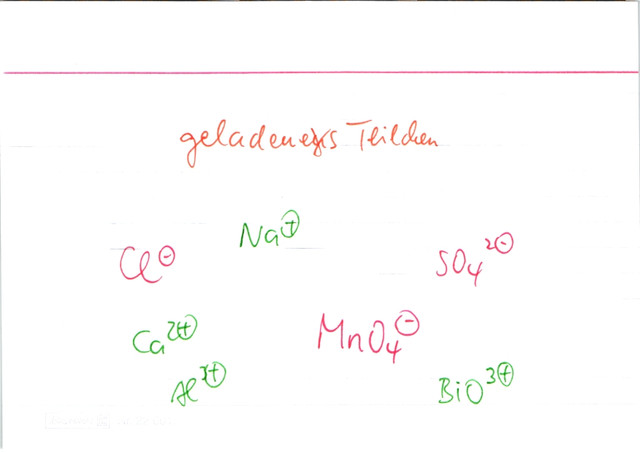 geladenes Teilchen
Na⊕
Cl⊖
SO₄²⊖
Ca²⊕
MnO₄⊖
Al³⊕
BiO³⊕